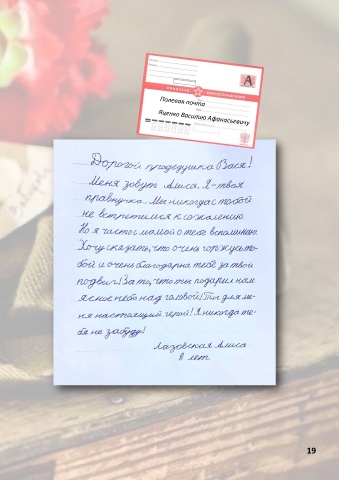 ВОИНСКАЯ КОРРЕСПОНДЕНЦИЯ
А
Полевая почта
Яценко Василию Афанасьевичу
Дорогой прадедушка Вася!
Меня зовут Алиса. Я - твоя
правнучка. Мы никогда с тобой
не встретимся к сожалению
Но я часто с мамой о тебе вспоминаю.
Хочу сказать, что очень горжусь то-
бой и очень благодарна тебе за твой
подвиг! За то, что ты подарил нам
ясное небо над головой! Ты для ме-
ня настоящий герой! Я никогда те-
бя не забуду!
Лазовская Алиса
8 лет
19